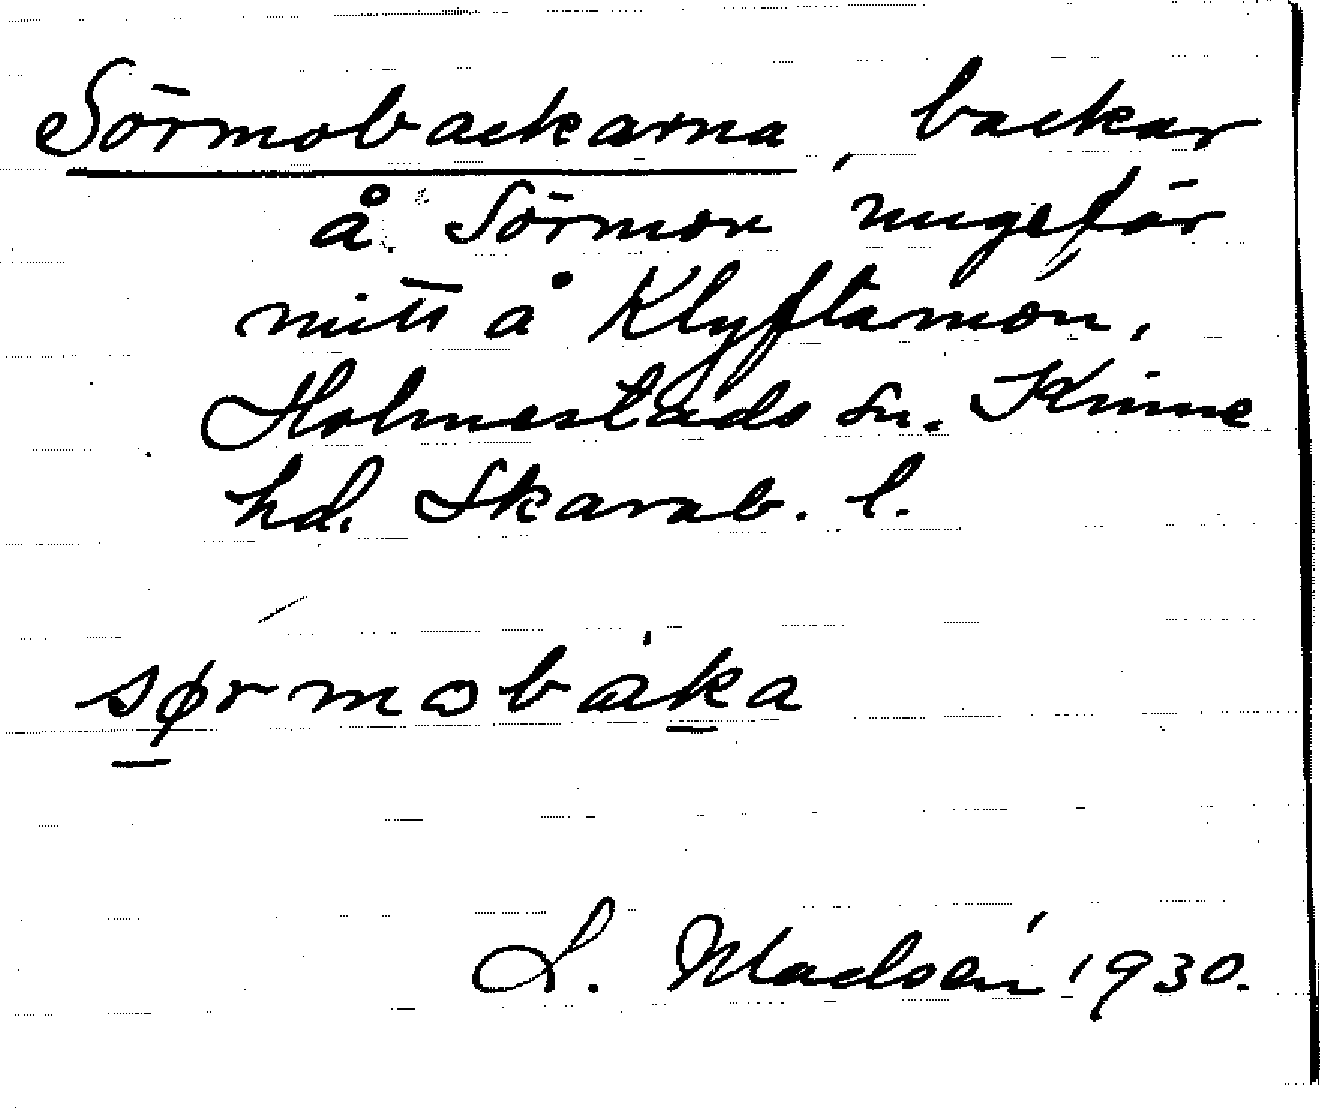 Sörmobackarna, backar
å Sörmon ungefär
mitt å Klyftamon,
Holmestads sn. Kinne
hd. Skarab. l.
sørmobaka
L. Madsén 1930.